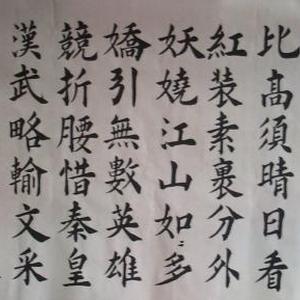 比高須晴日看
紅装素裹分外
妖嬈江山如多
嬌引無數英雄
競折腰惜秦皇
漢武略輸文采